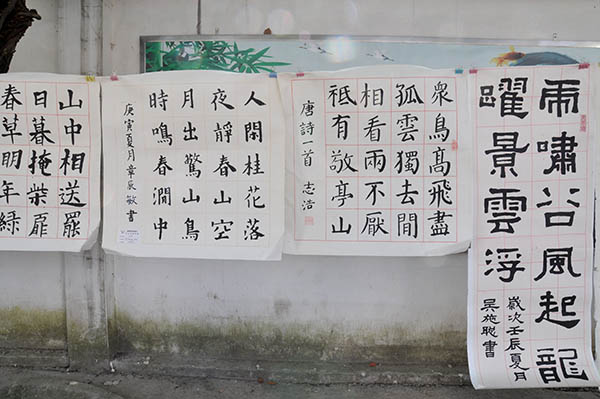 虎嘯谷風起龍
躍景雲浮
歲次壬辰夏月
吳施聰書
衆鳥髙飛盡
孤雲獨去閒
相看兩不厭
祗有敬亭山
唐詩一首 志浩
人閑桂花落
夜靜春山空
月出驚山鳥
時鳴春澗中
庚寅夏月 章辰敏書
山中相送罷
日暮掩柴扉
春草明年綠